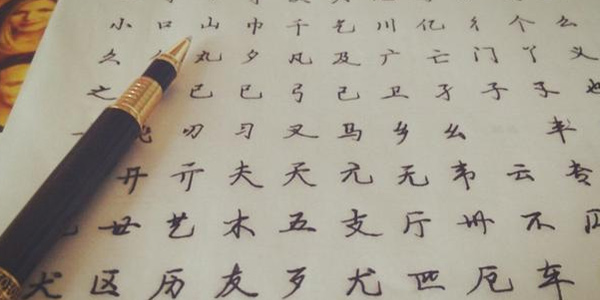 小 口 山 巾 千 乞 川 亿 彳 个 么
久 丸 夕 凡 及 广 亡 门 丫 义
之 已 巳 弓 己 卫 孑 子 孓 也
飞 刃 习 叉 马 乡 幺 丰
开 亓 夫 天 元 无 韦 云 专
廿 艺 木 五 支 厅 卅 不
犬 区 历 友 歹 尤 匹 厄 车